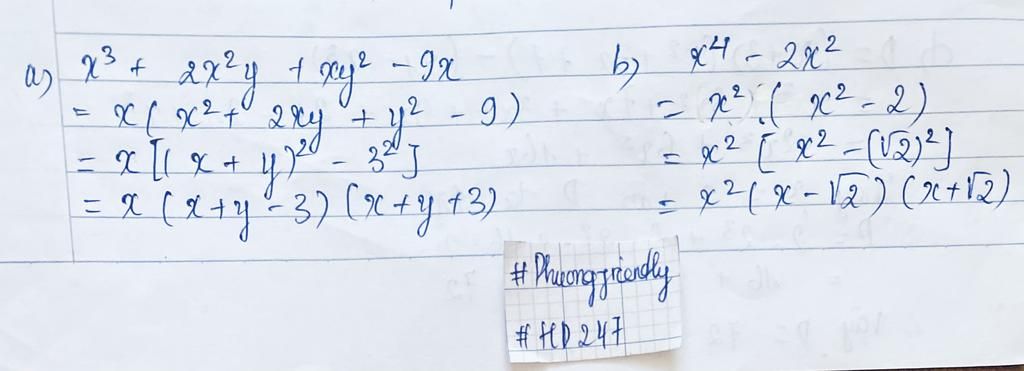 a) x³ + 2x²y + xy² - 9x
= x ( x² + 2xy + y² - 9 )
= x [( x + y )² - 3²]
= x ( x + y - 3 ) ( x + y + 3 )
b) x⁴ - 2x²
= x² . ( x² - 2 )
= x² [ x² - (√2)² ]
= x² ( x - √2 ) ( x + √2 )
#Phuongfriendly
#HD247